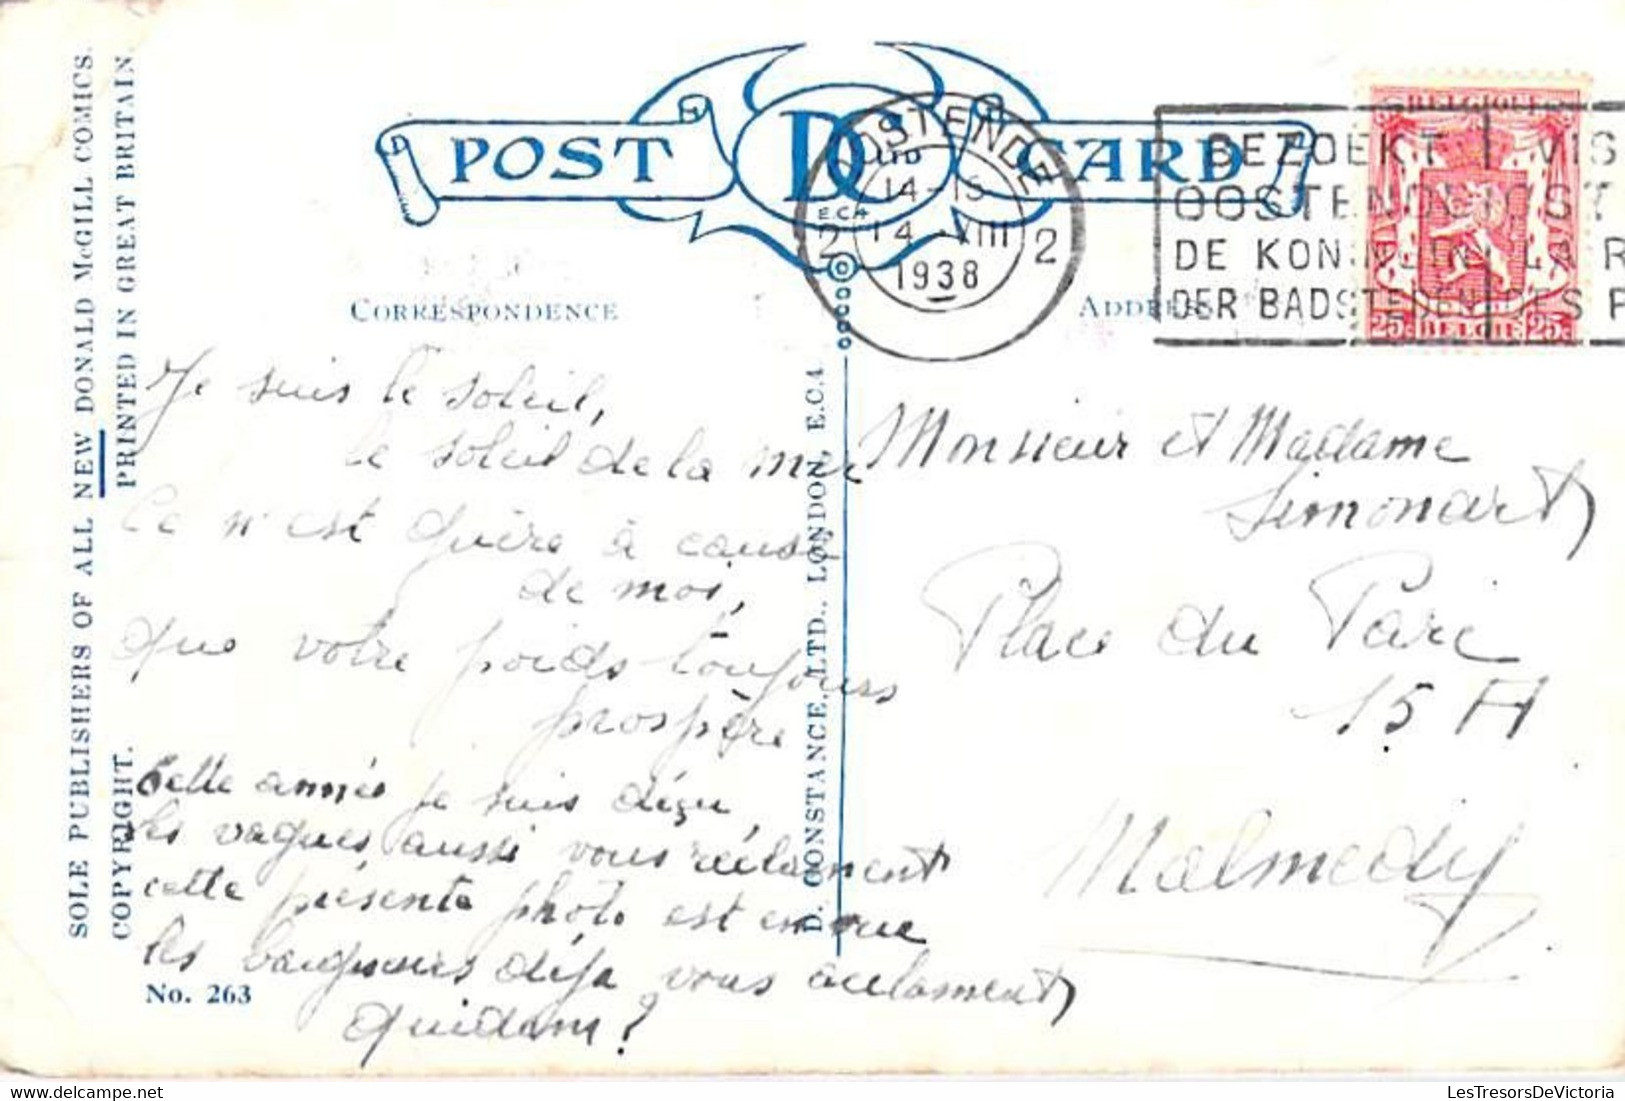 POST CARD
DC
LTD
E.C.4
OOSTENDE
14-15
14 VIII
1938
2 2
BEZOEKT
OOSTENDE
DE KONINGIN
DER BADSTEDEN
VIS
OST
LA R
DES P
BELGIQUE
25c BELGIË 25c
SOLE PUBLISHERS OF ALL NEW DONALD McGILL COMICS.
COPYRIGHT. PRINTED IN GREAT BRITAIN.
CORRESPONDENCE
ADDRESS
D. CONSTANCE, LTD., LONDON, E.C.4.
Je suis le soleil,
le soleil de la mer
Ce n'est guère à cause
de moi,
que votre poids toujours
prospère
Cette année je suis déçu
les vagues aussi vous réclament
cette présente photo est en vue
les baigneurs déja vous acclament
Quidam?
No. 263
Monsieur et Madame
Simonart
Place du Parc
15 A
Malmedy
LesTresorsDeVictoria